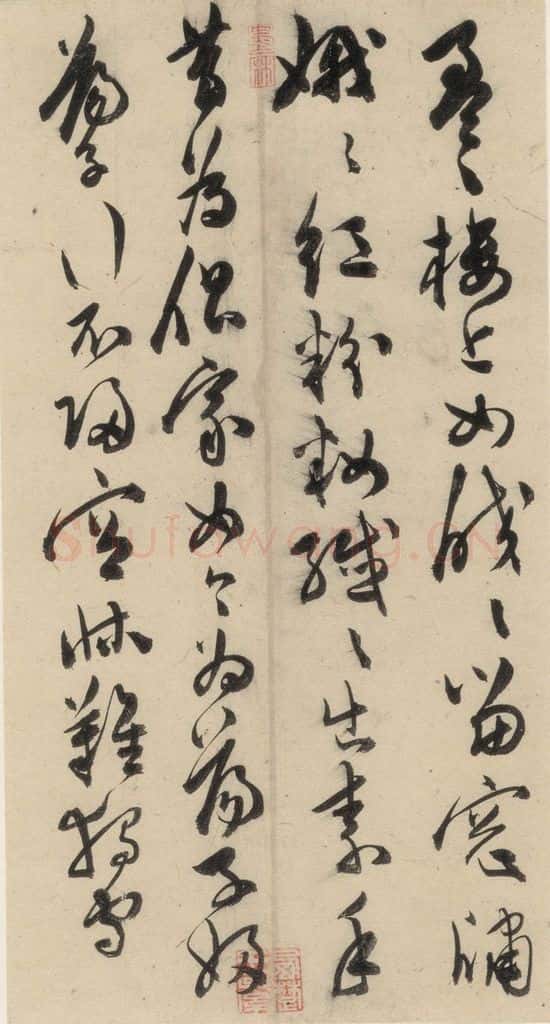 盈〻樓上女皎〻當窓牖
娥〻紅粉粧纖〻出素手
昔為倡家女今為蕩子婦
蕩子行不歸空牀難獨守
墨林
shufawang.CN